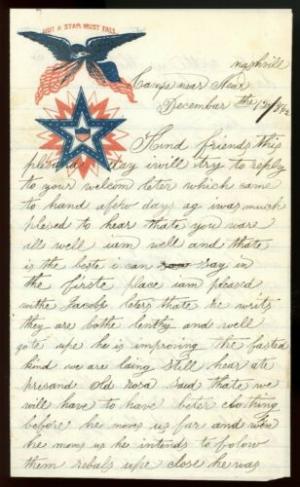 NOT A STAR MUST FALL
nashvill
Camp near New
December the 12 / 1862
Kind friends this
plesant day i will try to reply
to your welcom leter which came
to hand a few days ag i was much
plesed to hear thate you ware
all well i am well and thate
is the beste i can say in
the firste place i am plesed
withe Jacobs leters thate he writs
they are bothe lently and well
gote upe he is improving the fasted
kind we are laing still hear ate
presand old rosa said thate we
will have to have beter clothing
before he movs us far and when
he movs us he intends to folow
them rebals upe close he was